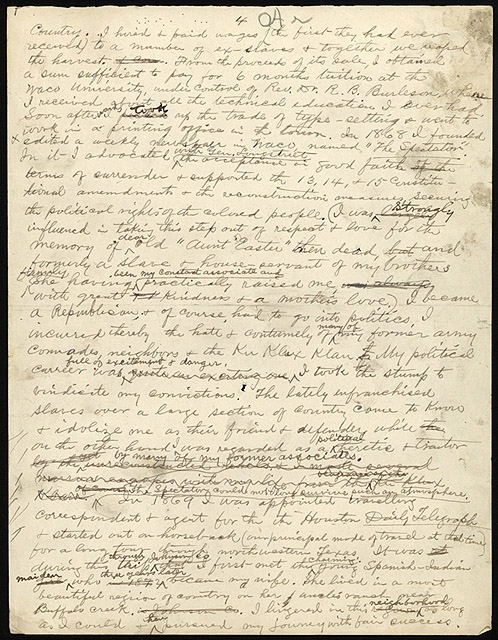 4
Country. I hired & paid wages (the first they had ever
received) to a number of ex-slaves & together we reaped
the harvest. From the proceeds of its sale, I obtained
a sum sufficient to pay for 6 months tuition at the
Waco University, under control of Rev. Dr. R. B. Burleson, where
I received all the technical education I ever had.
Soon after took up the trade of type-setting & went to
work in a printing office in the town. In 1868 I founded
& edited a weekly newspaper in Waco, named "The Spectator".
with Gen. Longstreet
In it I advocated the acceptance in good faith of the
terms of surrender & supported the 13, 14, & 15 Constitu-
tional amendments & the reconstruction measures, securing
the political rights of the colored people. (I was strongly
influenced in taking this step out of respect & love for the
memory of dear old "Aunt Easter" then dead, but and
formerly a slave & house-servant of my brothers
family been my constant associate and
she having practically raised me
with great kindness & a mother's love.) I became
a Republican, & of course had to go into politics. I
incurred thereby the hate & contumely of many of my former army
Comrades, neighbors & the Ku Klux Klan. My political
full of excitement & danger.
career was I took the stump to
vindicate my convictions. The lately enfranchised
slaves over a large section of country came to know
& idolize me as their friend & defender, while
political
on the other hand I was regarded as a heretic & traitor
by many of my former associates.
The Spectator could not long survive such an atmosphere.
In 1869 I was appointed travelling
correspondent & agent for the Houston Daily Telegraph
& started out on horseback (our principal mode of travel at that time)
for a long through northwestern Texas. It was
during this that I first met the charming young Spanish-Indian
maiden who three years later became my wife. She lived in a most
beautiful region of country on her uncle's ranch near
Buffalo creek. I lingered in this neighborhood as long
as I could then pursued my journey with fair success.